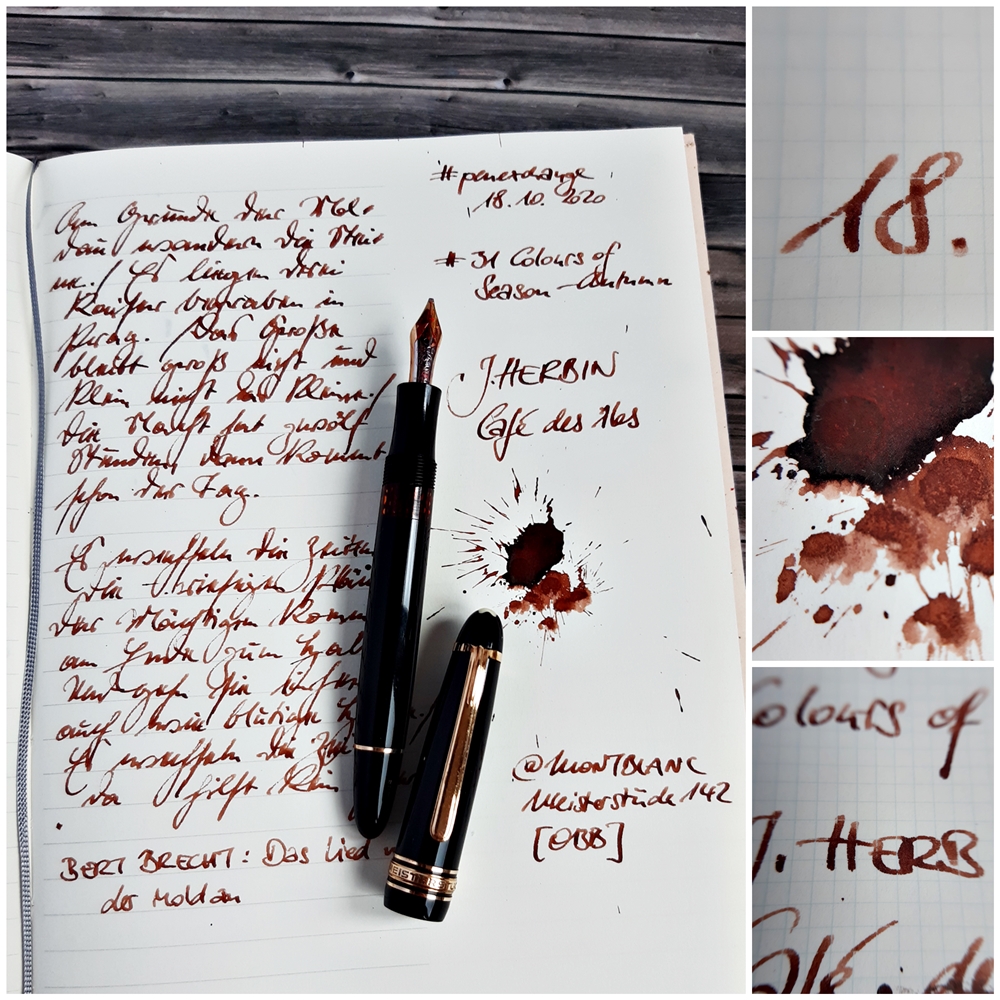 Am Grunde der Mol-
dau wandern die Stei-
ne./ Es liegen drei
Kaiser begraben in
Prag. Das Große
bleibt groß nicht und
klein nicht das Kleine./
Die Nacht hat zwölf
Stunden, dann kommt
schon der Tag.
Es wechseln die Zeiten
Die riesigen Plän
der Mächtigen Komm
am Ende zum Hal
Und gehn sie einher
auch wie blutige H
Es wechseln die Zei
da hilft kein
BERT BRECHT: Das Lied v
der Moldau
#penexchange
18. 10. 2020
# 31 Colours of
Season - Autumn
J. HERBIN
Café des Iles
@MONTBLANC
Meisterstück 142
[OBB]
18.
olours of
J. HERB